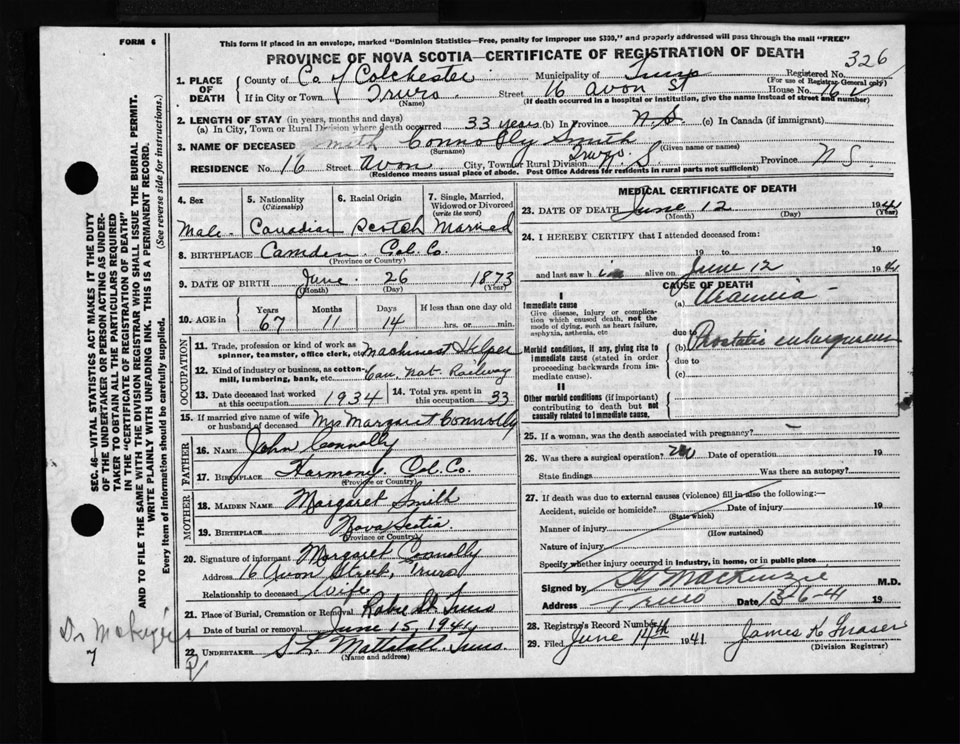 FORM 6
This form if placed in an envelope, marked "Dominion Statistics—Free, penalty for improper use $300," and properly addressed will pass through the mail "FREE"
PROVINCE OF NOVA SCOTIA—CERTIFICATE OF REGISTRATION OF DEATH
326
1. PLACE OF DEATH
County of Co of Colchester Municipality of Truro Registered No.
(For use of Registrar General only)
If in City or Town Truro Street 16 Avon St House No. 16
(Name) (If death occurred in a hospital or institution, give the name instead of street and number)
2. LENGTH OF STAY (in years, months and days)
(a) In City, Town or Rural Division where death occurred 33 years (b) In Province N.S. (c) In Canada (if immigrant)
3. NAME OF DECEASED Smith Connolly Smith
(Surname) (Given name or names)
RESIDENCE No. 16 Street Avon City, Town or Rural Division Truro Province N S.
(Residence means usual place of abode. Post Office Address for residents in rural parts not sufficient)
4. Sex
5. Nationality (Citizenship)
6. Racial Origin
7. Single, Married, Widowed or Divorced (write the word)
Male. Canadian Scotch Married
8. BIRTHPLACE Camden Col. Co.
(Province or Country)
9. DATE OF BIRTH June 26 1873
(Month) (Day) (Year)
10. AGE in Years Months Days If less than one day old
67 11 14 hrs. or min.
OCCUPATION
11. Trade, profession or kind of work as spinner, teamster, office clerk, etc. Machinest Helper
12. Kind of industry or business, as cotton-mill, lumbering, bank, etc. Can. Nat. Railway
13. Date deceased last worked at this occupation 1934
14. Total yrs. spent in this occupation 33
15. If married give name of wife or husband of deceased Mrs Margaret Connolly
FATHER
16. NAME John Connolly
17. BIRTHPLACE Harmony. Col. Co.
(Province or Country)
MOTHER
18. MAIDEN NAME Margaret Smith
19. BIRTHPLACE Nova Scotia.
(Province or Country)
20. Signature of informant Margaret Connolly
Address 16 Avon Street, Truro
Relationship to deceased Wife
21. Place of Burial, Cremation or Removal Robie St. Truro
Date of burial or removal June 15, 1941
22. UNDERTAKER Truro
(Name and address)
MEDICAL CERTIFICATE OF DEATH
23. DATE OF DEATH June 12 1941
(Month) (Day) (Year)
24. I HEREBY CERTIFY that I attended deceased from:
19 to 19
and last saw h im alive on June 12 1941
CAUSE OF DEATH
I
Immediate cause
Give disease, injury or complication which caused death, not the mode of dying, such as heart failure, asphyxia, asthenia, etc
(a) Uraemia
due to
Morbid conditions, if any, giving rise to immediate cause (stated in order proceeding backwards from immediate cause).
(b) Prostatic enlargement
due to
(c)
II
Other morbid conditions (if important) contributing to death but not causally related to immediate cause.
25. If a woman, was the death associated with pregnancy?
26. Was there a surgical operation? no Date of operation 19
State findings Was there an autopsy?
27. If death was due to external causes (violence) fill in also the following:—
Accident, suicide or homicide? Date of injury 19
(State which)
Manner of injury
(How sustained)
Nature of injury
Specify whether injury occurred in industry, in home, or in public place
Signed by MacKenzie M.D.
Address Truro Date 13-6-41 19
28. Registrar's Record Number
29. Filed June 14th 1941 James K Fraser
(Division Registrar)
SEC. 46—VITAL STATISTICS ACT MAKES IT THE DUTY
OF THE UNDERTAKER OR PERSON ACTING AS UNDER-
TAKER TO OBTAIN ALL THE PARTICULARS REQUIRED
IN THE "CERTIFICATE OF REGISTRATION OF DEATH"
AND TO FILE THE SAME WITH THE DIVISION REGISTRAR WHO SHALL ISSUE THE BURIAL PERMIT.
WRITE PLAINLY WITH UNFADING INK. THIS IS A PERMANENT RECORD.
Every item of information should be carefully supplied. (See reverse side for instructions.)